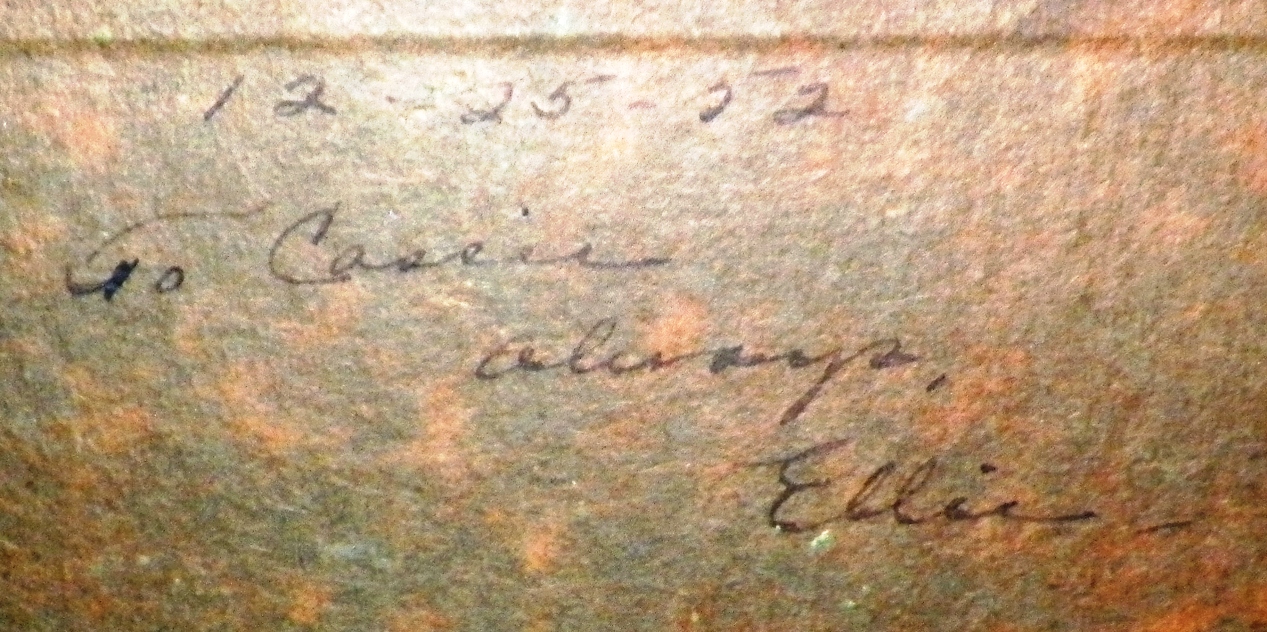 12-25-52
To Cassie
always,
Ellie